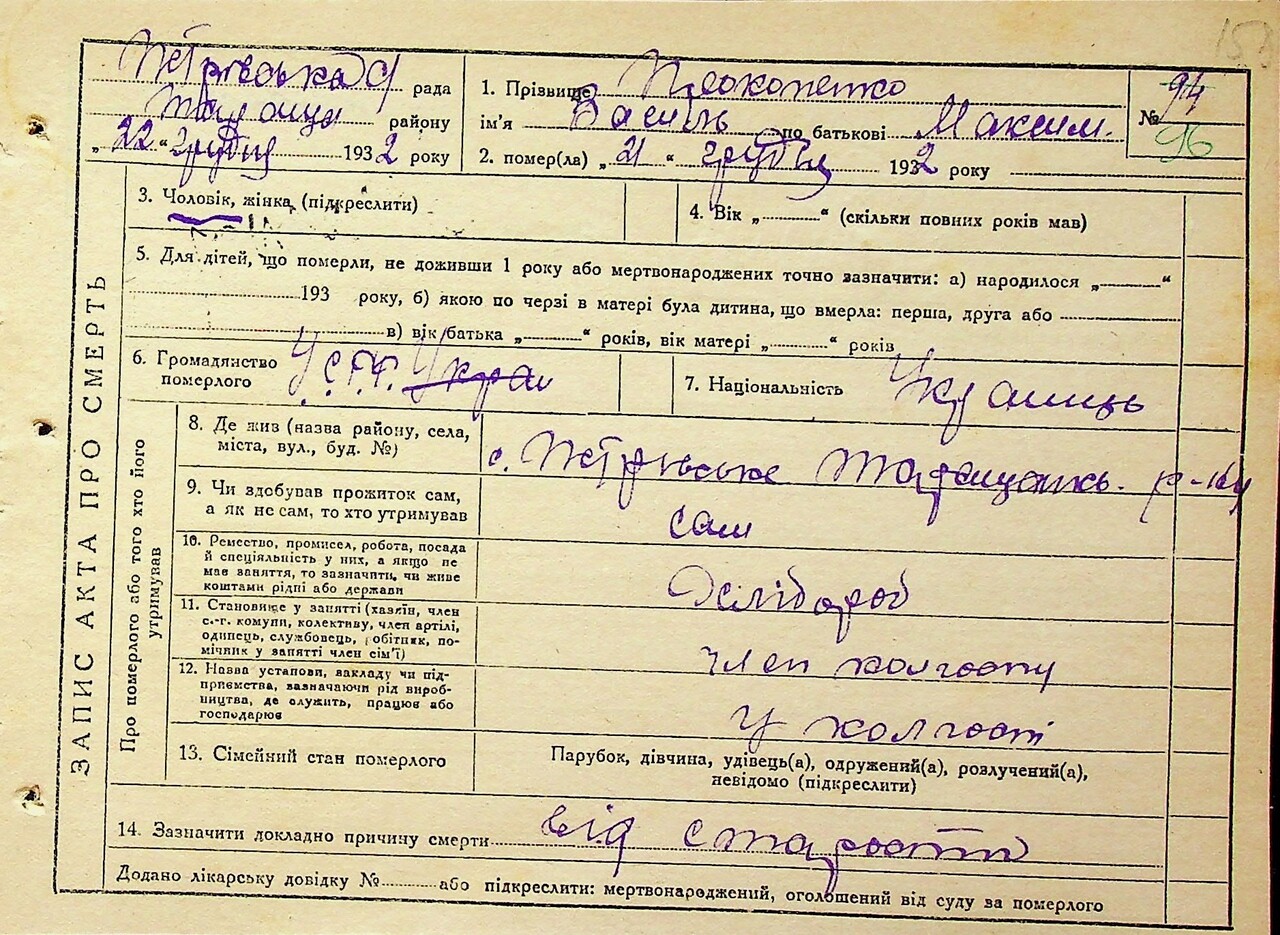 15
Петрівська с/ рада
Таращa району
„ 22 “ грудня 1932 року
1. Прізвище Прокопенко
ім'я Василь по батькові Максим.
2. помер(ла) „ 21 “ грудня 1932 року
№ 94
96
ЗАПИС АКТА ПРО СМЕРТЬ
3. Чоловік, жінка (підкреслити)
4. Вік „ “ (скільки повних років мав)
5. Для дітей, що померли, не доживши 1 року або мертвонароджених точно зазначити: а) народилося „ “
193 року, б) якою по черзі в матері була дитина, що вмерла: перша, друга або
в) вік батька „ “ років, вік матері „ “ років
6. Громадянство
померлого
У.С.Р.Р. Украї
7. Національність Українець
Про померлого або того хто його
утримував
8. Де жив (назва району, села,
міста, вул., буд. №)
с. Петрівське Таращансь. р-ну
9. Чи здобував прожиток сам,
а як не сам, то хто утримував
сам
10. Ремество, промисел, робота, посада
й спеціяльність у них, а якщо не
мав заняття, то зазначити, чи живе
коштами рідні або держави
Хлібороб
11. Становище у занятті (хазяїн, член
с.-г. комуни, колективу, член артілі,
одинець, службовець, робітник, по-
мічник у занятті член сім'ї)
член колгоспу
12. Назва установи, закладу чи під-
приємства, зазначаючи рід вироб-
ництва, де служить, працює або
господарює
у колгоспі
13. Сімейний стан померлого
Парубок, дівчина, удівець(а), одружений(а), розлучений(а),
невідомо (підкреслити)
14. Зазначити докладно причину смерти від старости
Додано лікарську довідку № або підкреслити: мертвонароджений, оголошений від суду за померлого